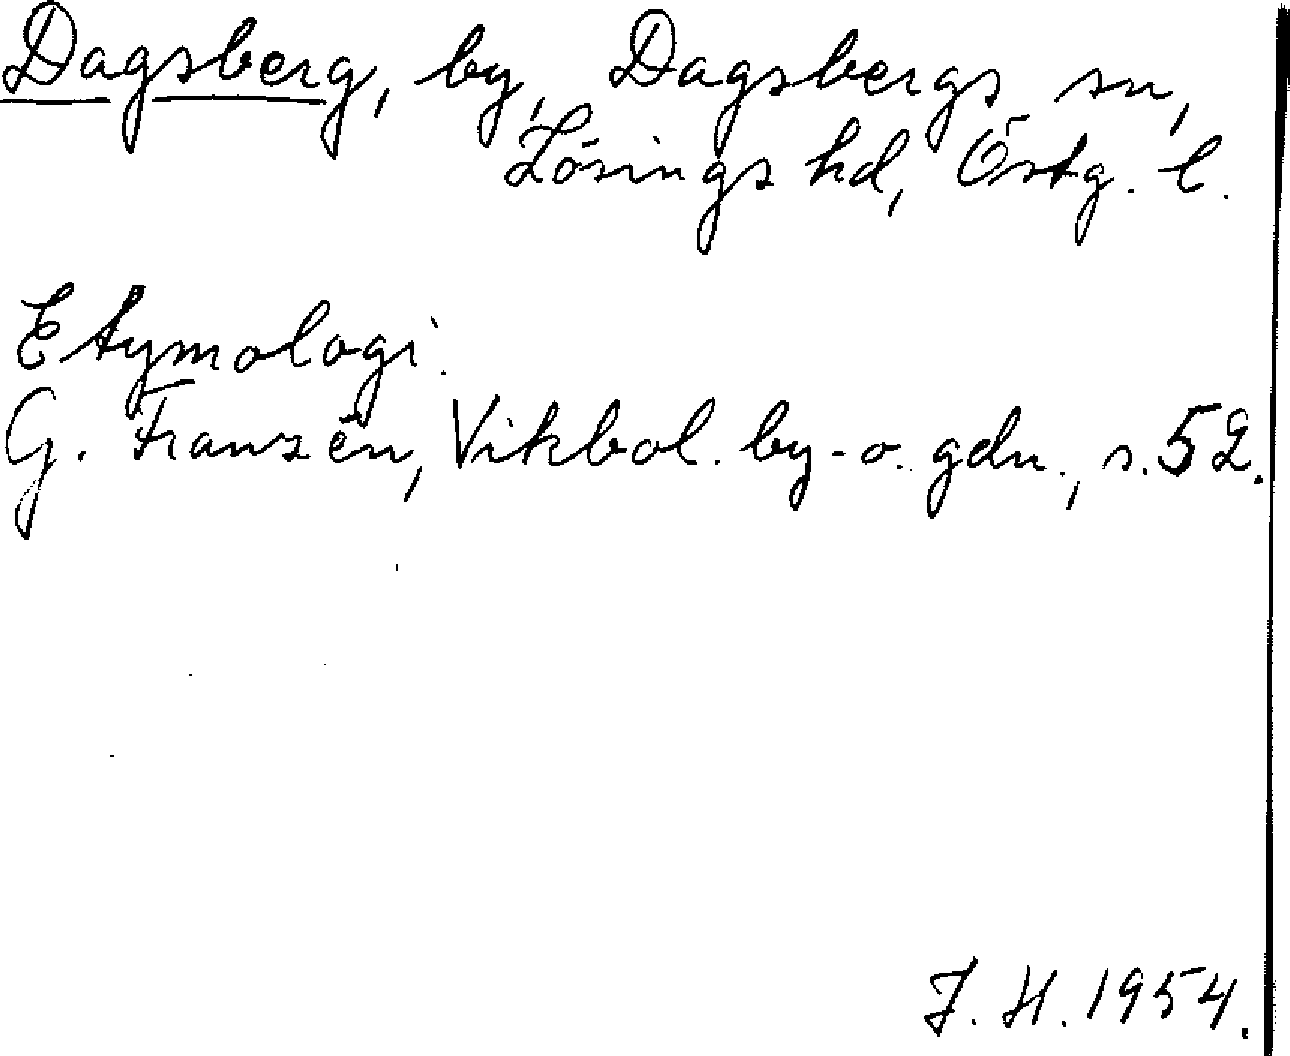 Dagsberg, by, Dagsbergs sn,
Lösings hd, Östg. l.
Etymologi.
G. Franzén, Vikbol. by- o. gdn., s. 52.
J. H. 1954.